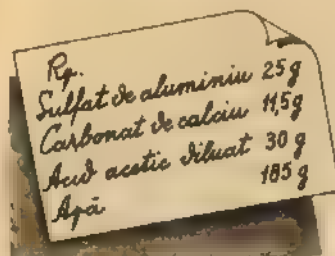 Rp.
Sulfat de aluminiu 25 g
Carbonat de calciu 11,5 g
Acid acetic diluat 30 g
Apă 185 g